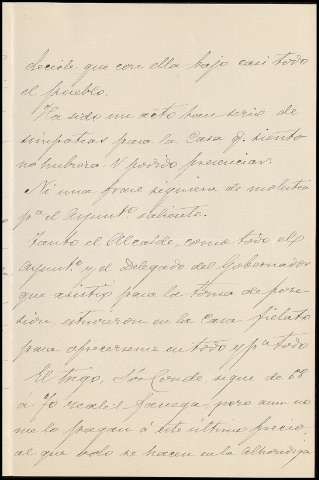 decirle que con ella bajó casi todo
el pueblo.
Ha sido un acto tan serio de
simpatias para la Casa q. siento
no hubiera V podido presenciar.
Ni una frase siquiera de molestia
pª el Ayuntº saliente.
Tanto el Alcalde, como todo el
Ayuntº y el Delegado del Gobernador
que asistió para la toma de pose-
sión, estuvieron en la Casa
para ofrecerseme en todo y pª todo
El trigo, Sor Conde sigue de 68
á 70 reales fanega, pero aun no
me lo pagan á este ultimo precio,
al que solo se hacen en la alhondiga